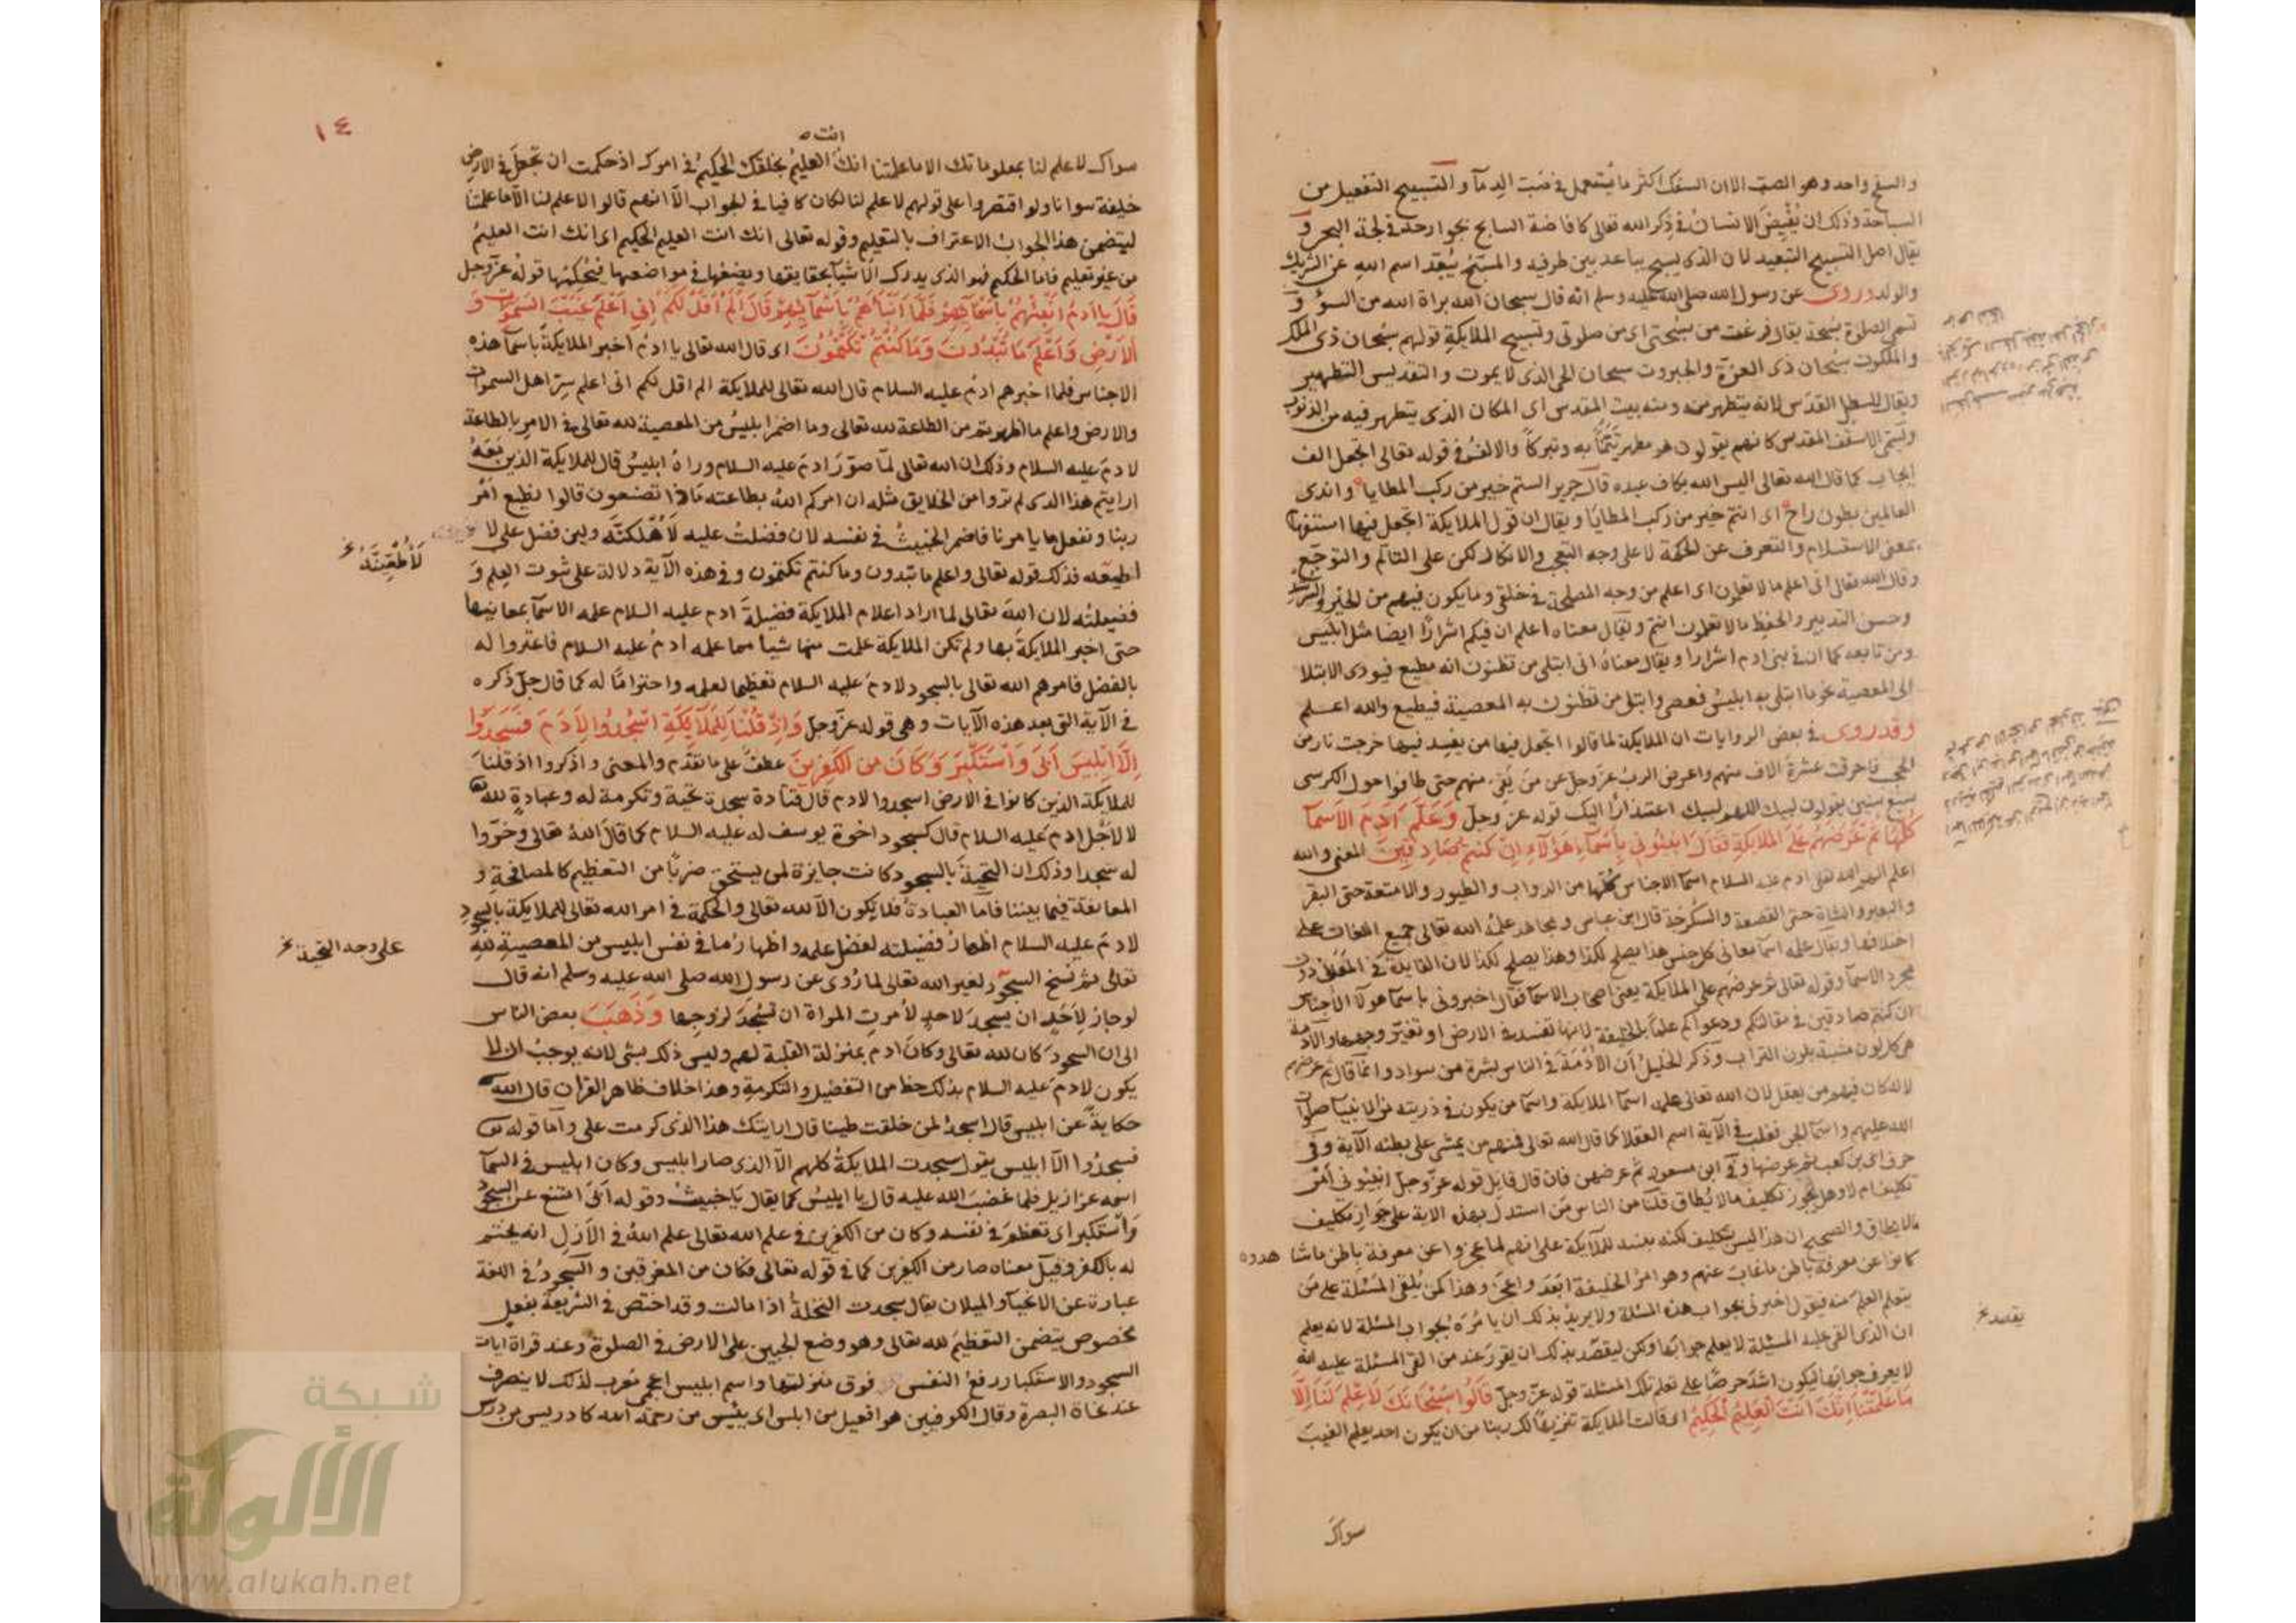 والسفح واحد وهو الصب الا ان السفك اكثر ما يستعمل في صب الدمآ والتسبيح التفعيل من
السباحة وذلك ان يُفيضَ الانسانُ في ذِكر الله تعالى كافاضة السابح بجوارحه في لجة البحر و
يقال اصل التسبيح التبعيد لان الذى يسبح يباعد بين طرفيه والمسبّح يُبعّد اسم اللهِ عن الشريك
والولد وروى عن رسول الله صلى الله عليه وسلم انه قال سبحان الله براة الله من السؤ و
تسمى الصلوة سُبحة يقال فرغت من سُبحتى اى من صلوتى وتسبيح الملايكة قولهم سُبحان ذى الملك
والملكوت سُبحان ذى العزة والجبروت سبحان الحى الذى لا يموت والتقديس التطهير
ويقال للسطل القدَس لانه يتطهر منه ومنه بيت المقدس اى المكان الذى يتطهر فيه من الذنوب
كانهم يقولون هو مطهر به وتبركاً والالف في قوله تعالى اتجعل الف
ايجاب كما قال الله تعالى اليس الله بكاف عبده قال جرير الستم خير من ركب المطايا واندى
العالمين بطون راح اى انتم خير من ركب المطايا ويقال ان قول الملايكة اتجعل فيها استفهام
بمعنى الاستسلام والتعرف عن الحكمة لا على وجه التعجب والانكار لكن على التالم والتوجّع
وقال الله تعالى انى اعلم ما لا تعلمون اى اعلم من وجه المصلحة في خلقى وما يكون فيهم من الخير والشر
وحسن التدبير والحفظ ما لا تعلمون انتم ويقال معناه اعلم ان فيكم اشراراً ايضا مثل ابليس
ومن تابعه كما ان في بنى ادم اشرارا ويقال معناهُ انى ابتلى من تظنون انه مطيع فيودى الابتلا
الى المعصية نحو ما ابتلى به ابليسُ فعصى وابتلى من تظنون به المعصية فيطيع والله اعلم
وقد روى في بعض الروايات ان الملايكة لما قالوا اتجعل فيها من يفسد فيها خرجت نار من
الحجب فاحرقت عشرة الاف منهم واعرض الربُ عز وجل عن من بَقى منهم حتى طافوا حول الكرسى
سبع سنين يقولون لبيك اللهم لبيك اعتذاراً اليك قوله عز وجلّ وَعَلَّمَ آدَمَ الاَسمآ
كُلَّهَا ثم عَرَضَهُم عَلَى الملايكةِ فَقالَ انبئونى بِاَسمآءِ هَؤلآءِ اِن كنتم صَادِقِينَ المعنى والله
اعلم الهم الله تعالى ادم عليه السلام اسمآ الاجناس كُلها من الدواب والطيور والامتعة حتى البقر
والبعير والشاة حتى القصعة والسُكرجة قال ابن عباس ومجاهد علمهُ الله تعالى جميع اللغات على
اختلافها ويقال علمه اسمآ معانى كل جنس هذا يصلح لكذا وهذا يصلح لكذا لان الفايدة في المعَنى دون
مجرد الاسمآ وقوله تعالى ثم عرضهم على الملايكة يعنى اصحاب الاسمآ فقال اخبرونى باسمآ هولآ الاجناس
ان كنتم صادقين في مقالتكم ودعواكم علماً بالخليفة لانها تفسد في الارض او تغيّر وجهها والآدمة
هى كل لون مشبه بلون التراب وذكر الخليل ان الاُدمَة في الناس بشرة من سواد وانما قال ثم عرضهم
لانه كان فيهم من يعقل لان الله تعالى علمه اسمآ الملايكة واسمآ من يكون في ذريته من الانبيآ صلوات
الله عليهم واسمآ الجن فغلب في الآية اسم العقلا كما قال الله تعالى فمنهم من يمشى على بطنه الآية وفى
حرف اُبى بن كعب ثم عرضها وفى ابن مسعود ثم عرضهن فان قال قايل قوله عز وجل انبئونى امر
تكليف ام لا وهل يجوز تكليف ما لا يُطاق قلنا من الناس مَن استدل بهذه الاية على جَوازِ تكليف
مالا يطاق والصحيح ان هذا ليس بتكليف لكنه للملايكة على انهم لما عجزوا عن معرفة باطن ما شاهدوه
كانوا عن معرفة باطن ما غابَ عنهم وهو امرُ الخليفة ابعَدَ واعجزَ وهذا كمن يُلقى المسئلة على من
يتعلم العلم منه فيقول اخبرنى بجواب هذه المسئلة ولا يريدُ بذلك ان يامُرَه بجواب المسئلة لانه يعلم
ان الذى القى عليه المسئلة لا يعلم جوابَها ولكن ليقصد بذلك ان يقرر عند من القى المسئلة عليه انهُ
لا يعرف جوابها ليكون اشدّ حرصا على تعلم تلك المسئلة قوله عزّ وجلّ قَالُوا سُبْحَانَكَ لَا عِلْمَ لَنَا إِلَّا
مَا عَلَّمْتَنَا إِنَّكَ انْتَ الْعَلِيمُ الْحَكِيمُ اى قالت الملايكة تنزيهاً لك ربنا من ان يكون احد يعلم الغيبَ
يقصد
سواكَ
١٤
انت
سواك لا علم لنا بمعلوماتك الا ما علمتنا انكَ العليمُ بخلقك الحكيمُ في امرك اذ حكمت ان تجعلَ في الارض
خليفة سوانا ولو اقتصروا على قولهم لا علم لنا لكان كافيا في الجواب الّا انهم قالوا لا علم لنا الّا ما علمتنا
ليتضمن هذا الجواب الاعتراف بالتعليم وقوله تعالى انك انت العليم الحكيم اى انك انت العليمُ
من غير تعليم فاما الحكيم فهو الذى يدرك الاشيآ بحقايقها ويضعُها في مواضعها قولهُ عزّ وجل
قَالَ يَا ادَمُ اَنْبِئْهُمْ بِاَسْمَآئِهِمْ فَلَمَّا اَنْبَأَهُمْ بِاَسْمَآئِهِمْ قَالَ اَلَمْ اَقُلْ لَكُمْ اِنِّى اَعْلَمُ غَيْبَ السَّمواتِ وَ
اَلاَرْضِ وَاَعْلَمُ مَا تُبْدُونَ وَمَا كُنْتُمْ تَكْتُمُونَ اى قال الله تعالى يا ادمُ اخبر الملايكةَ باسمآ هذه
الاجناس فلما اخبرهم ادمُ عليه السلام قال الله تعالى للملايكة الم اقل لكم انى اعلم سِرّ اهل السموات
والارض واعلم ما اظهرتم من الطاعة لله تعالى وما اضمر ابليسُ من المعصية لله تعالى في الامرِ بالطاعة
لادمَ عليه السلام وذلك ان الله تعالى لمّا صوّرَ ادمَ عليه السلام وراهُ ابليسُ قال للملايكة الذين مَعَهُ
ارايتم هذا الذى لم تروا من الخلايق مثله ان امركم اللهُ بطاعته مَاذا تصنعون قالوا نطيع امْر
ربنا ونفعل ما يامرنا فاضمر الخبيثُ في نفسه لان فضلتُ عليه لَاُهْلكنّه ولين فضل على لا
اطيعه فذلك قوله تعالى واعلم ما تبدون وما كنتم تكتمون وفي هذه الآية دلالة على ثبوت العِلم وَ
فضيلته لان اللهَ تعالى لما اراد اعلام الملايكة فضيلةَ ادم عليه السلام علمه الاسمآ بمعانيها
حتى اخبر الملايكةَ بها ولم تكن الملايكة علمت منها شيأ مما علمه ادمُ عليه السلام فاعتروا له
بالفضل فامرهم الله تعالى بالسجود لادمَ عليه السلام تعظيما لعلمه واحترامًا له كما قال جلّ ذكره
في الآية التى بعد هذه الآيات وهى قوله عزّ وجل وَاِذْ قُلْنَا لِلْمَلَايكَةِ اسْجُدُوا لِاَدَمَ فَسَجَدُوْا
اِلَّا اِبْلِيسَ اَبَى وَاسْتَكْبَرَ وَكَانَ مِنَ الْكَفِرِينَ عطفٌ على ما تقدّم والمعنى واذكروا اذ قلنَا
للملايكة الذين كانوا في الارض اسجدوا لادم قال قتادة سجدة تحية وتكرمة له وعبادةٍ لله
لا لاَجْل ادم عليه السلام قال كسجود اخوة يوسف له عليه السلام كما قال اللهُ تعالى وخرّوا
له سُجدا وذلك ان التحيةَ بالسجود كانت جايزة لمن يستحق ضربًا من التعظيم كالمصافحةِ و
المعانقة فيما بيننا فامّا العبادةُ فلا يكون الّا لله تعالى والحكمة في امر الله تعالى للملايكة بالسجود
لادمَ عليه السلام اظهارُ فضيلته لفضل علمه واظهارُ ما في نفس ابليس من المعصيةِ للهِ
تعالى ثم نُسِخ السجُودُ لغير الله تعالى لما رُوى عن رسول الله صلى الله عليه وسلم انه قال
لو جازَ لاَحَدٍ ان يسجدَ لاحدٍ لاُمرتِ المراة ان تسْجُدَ لزوجها وَذَهَبَ بعض الناس
الى ان السجودَ كان لله تعالى وكان ادم بمنزلة القبلة لهم وليس ذلك بشى لانه يوجبُ ان لا
يكون لادمَ عليه السلام بذلك حظ من التفضيل والتكرمةِ وهذا خلاف ظاهر القرانِ قال الله
حكايةً عن ابليس قال ااسجدُ لمن خلقت طينا قال ارايتك هذا الذى كرمت على وامّا قوله
فسجدُوا الّا ابليس يقول سجدت الملايكةُ كلهم الّا الذى صار ابليس وكان ابليس في السمآ
اسمه عزازيل فلما غضبَ الله عليه قال يا ابليسُ كما يقال يَا خبيثُ وقوله اَبَى امتنع عن السجود
وَاسْتكبر اى تعظمَ في نفسه وكان من الكفرين في علم الله تعالى علم اللهُ في الاَزلِ انه يختم
له بالكفر وقيلَ معناه صار من الكفرين كما في قوله تعالى فكان من المغرقين والسجودُ في اللغة
عبارة عن الانحنآ والميلان يقال سجدت النخلةُ اذا مالت وقد اختص في الشريعة بفعلٍ
مخصوص يتضمن التعظيمَ لله تعالى وهو وضع الجبين على الارض في الصلوةِ وعند قراة ايات
السجود والاستكبار رفعُ النفسِ فوق منزلتها واسم ابليس اعجمى مُعرب لذلك لا ينصرف
عند نحاة البصرة وقال الكوفيين هو افعيل من ابلس اى يئس من رحمة الله كادريس من درس
لَاُطْعِيَنَّهُ
على وجه التحية
شبكة
الألوكة
www.alukah.net